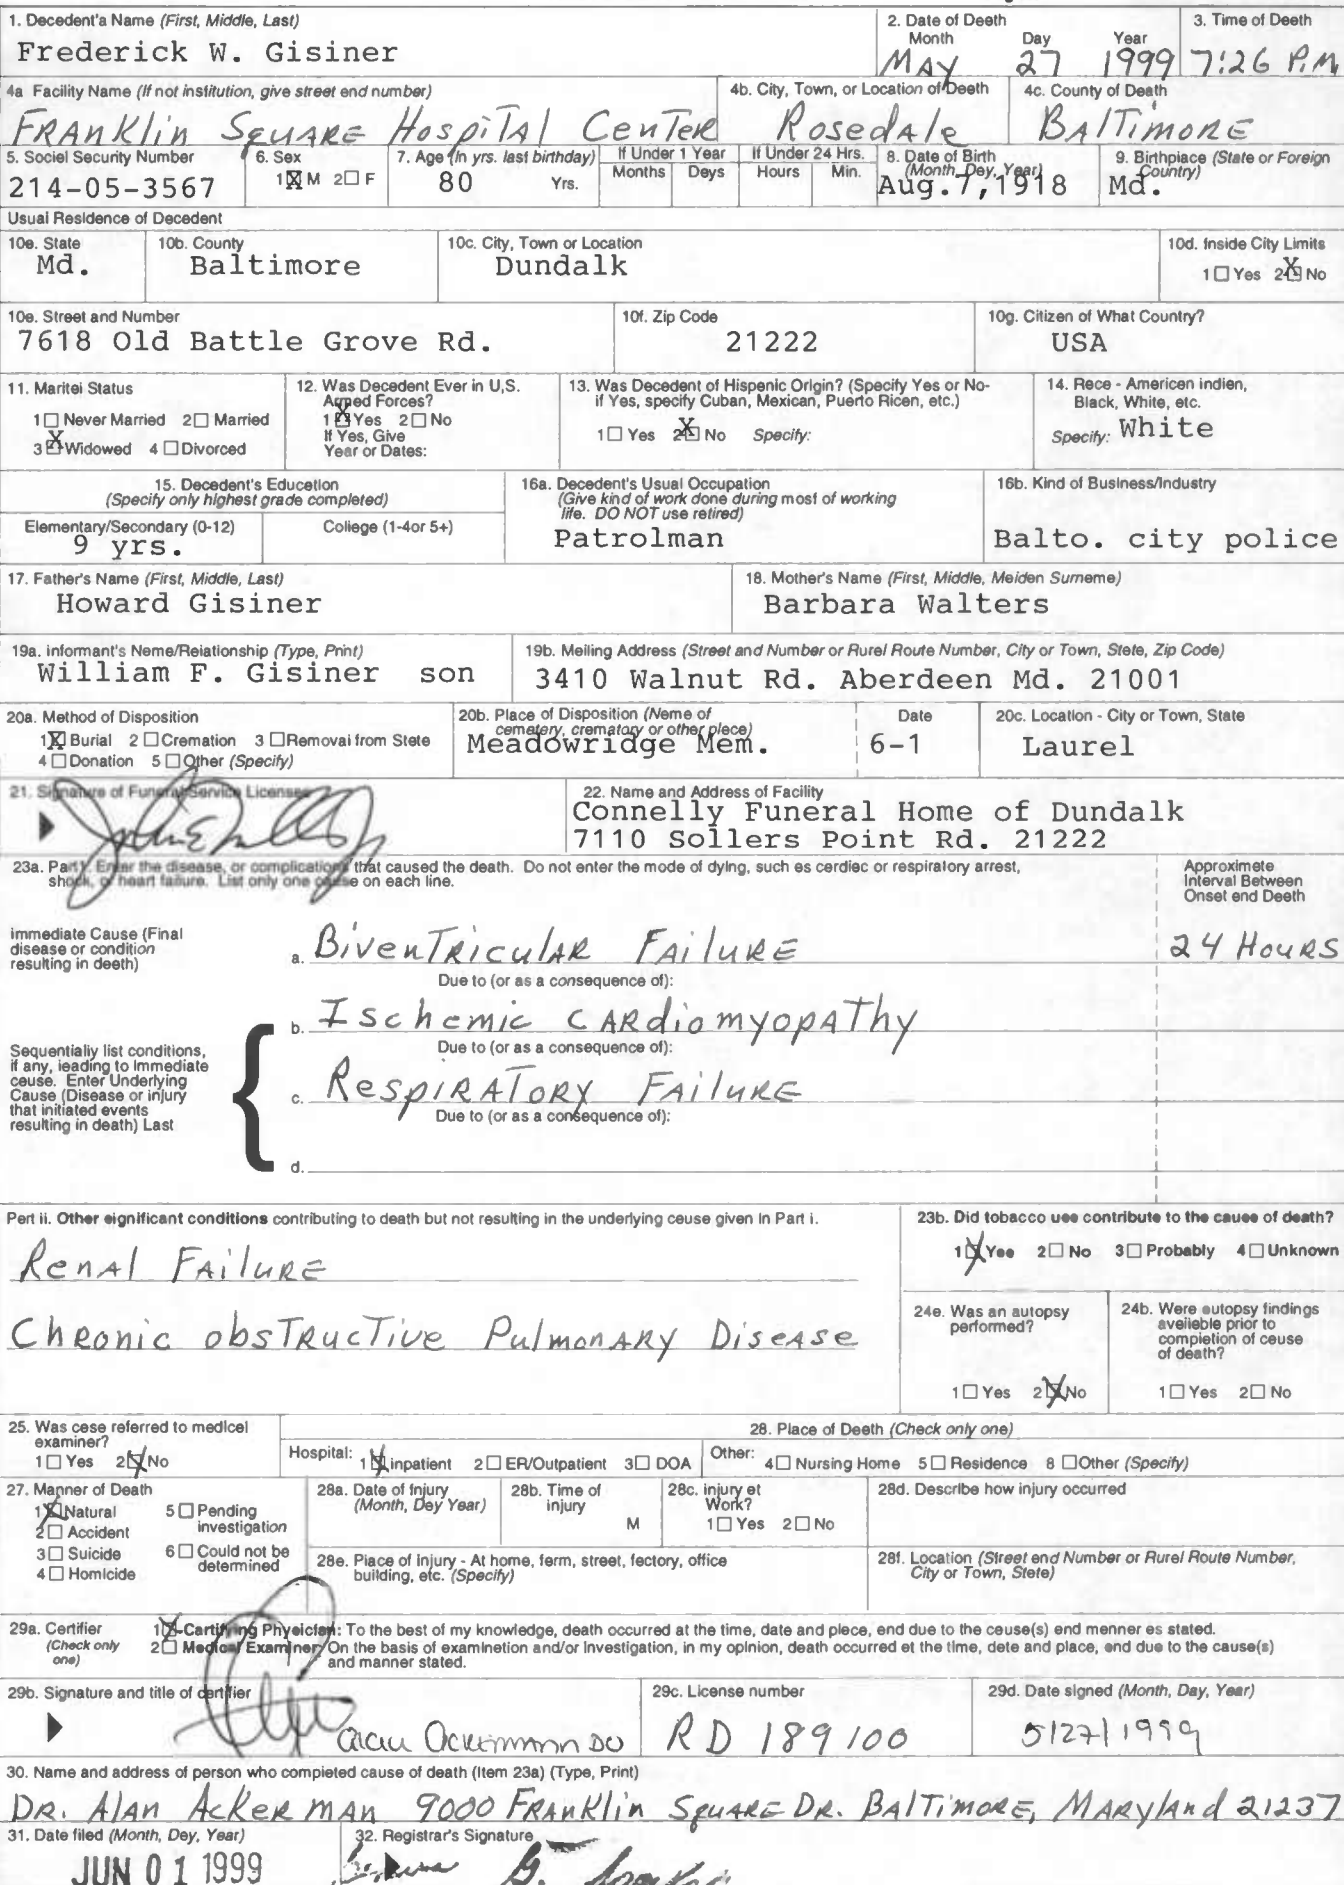 1. Decedent'a Name (First, Middle, Last)
Frederick W. Gisiner
2. Date of Deeth
Month Day Year
MAY 27 1999
3. Time of Deeth
7:26 P.M
4a Facility Name (If not institution, give street end number)
FRANKlin SQUARE HospiTAL CenTER
4b. City, Town, or Location of Deeth
RosedAle
4c. County of Death
BALTiMORE
5. Sociel Security Number
214-05-3567
6. Sex
1 X M 2 □ F
7. Age (In yrs. last birthday)
80 Yrs.
If Under 1 Year
Months Deys
If Under 24 Hrs.
Hours Min.
8. Date of Birth
(Month, Dey, Year)
Aug.7,1918
9. Birthpiace (State or Foreign
Country)
Md.
Usual Residence of Decedent
10e. State
Md.
10b. County
Baltimore
10c. City, Town or Location
Dundalk
10d. Inside City Limits
1 □ Yes 2 X No
10e. Street and Number
7618 Old Battle Grove Rd.
10f. Zip Code
21222
10g. Citizen of What Country?
USA
11. Maritei Status
1 □ Never Married 2 □ Married
3 X Widowed 4 □ Divorced
12. Was Decedent Ever in U,S.
Armed Forces?
1 X Yes 2 □ No
If Yes, Give
Year or Dates:
13. Was Decedent of Hispenic Origin? (Specify Yes or No-
if Yes, specify Cuban, Mexican, Puerto Ricen, etc.)
1 □ Yes 2 X No Specify:
14. Rece - American indien,
Black, White, etc.
Specify: White
15. Decedent's Education
(Specify only highest grade completed)
Elementary/Secondary (0-12)
9 yrs.
Coliege (1-4or 5+)
16a. Decedent's Usual Occupation
(Give kind of work done during most of working
life. DO NOT use retired)
Patrolman
16b. Kind of Business/Industry
Balto. city police
17. Father's Name (First, Middle, Last)
Howard Gisiner
18. Mother's Name (First, Middle, Meiden Surneme)
Barbara Walters
19a. informant's Neme/Reiationship (Type, Print)
William F. Gisiner son
19b. Meiling Address (Street and Number or Rurel Route Number, City or Town, Stete, Zip Code)
3410 Walnut Rd. Aberdeen Md. 21001
20a. Method of Disposition
1 X Burial 2 □ Cremation 3 □ Removai from Stete
4 □ Donation 5 □ Other (Specify)
20b. Place of Disposition (Neme of
cemetery, crematory or other plece)
Meadowridge Mem.
Date
6-1
20c. Location - City or Town, State
Laurel
21. Signature of Funeral Service Licensee
22. Name and Address of Facility
Connelly Funeral Home of Dundalk
7110 Sollers Point Rd. 21222
23a. Part I. Enter the disease, or complications that caused the death. Do not enter the mode of dying, such es cerdiec or respiratory arrest,
shock, or heart failure. List only one cause on each line.
Approximete
Interval Between
Onset end Deeth
immediate Cause (Final
disease or condition
resulting in deeth)
a. BivenTRiculAR FAiluRE
24 HouRS
Due to (or as a consequence of):
b. Ischemic CARdiomyopAThy
Due to (or as a consequence of):
Sequentialiy list conditions,
if any, ieading to Immediate
ceuse. Enter Underlying
Cause (Disease or injury
that initiated events
resulting in death) Last
c. RespiRATORY FAiluRE
Due to (or as a consequence of):
d.
Pert ii. Other eignificant conditions contributing to death but not resulting in the underlying ceuse given In Part i.
RenAl FAiluRE
ChRonic obsTRucTive PulmonARy DiseAse
23b. Did tobacco uee contribute to the cauee of death?
1 X Yee 2 □ No 3 □ Probably 4 □ Unknown
24e. Was an autopsy
performed?
1 □ Yes 2 X No
24b. Were eutopsy findings
aveilebie prior to
completion of ceuse
of death?
1 □ Yes 2 □ No
25. Was cese referred to medicel
examiner?
1 □ Yes 2 X No
28. Place of Deeth (Check only one)
Hospital: 1 X inpatient 2 □ ER/Outpatient 3 □ DOA Other: 4 □ Nursing Home 5 □ Residence 8 □ Other (Specify)
27. Manner of Death
1 X Natural
2 □ Accident
3 □ Suicide
4 □ Homicide
5 □ Pending
investigation
6 □ Couid not be
determined
28a. Date of Injury
(Month, Dey Year)
28b. Time of
injury
M
28c. injury et
Work?
1 □ Yes 2 □ No
28d. Describe how injury occurred
28e. Place of injury - At home, ferm, street, fectory, office
building, etc. (Specify)
28f. Location (Street end Number or Rurel Route Number,
City or Town, Stete)
29a. Certifier
(Check only
one)
1 X Certifying Phyeicien: To the best of my knowledge, death occurred at the time, date and plece, end due to the ceuse(s) end menner es stated.
2 □ Medical Examiner/On the basis of examinetion and/or Investigation, in my opinion, death occurred et the tIme, dete and place, end due to the cause(s)
and manner stated.
29b. Signature and title of certifier
Alan Ackermann DO
29c. License number
RD 189100
29d. Date signed (Month, Day, Year)
5/27/1999
30. Name and address of person who completed cause of death (Item 23a) (Type, Print)
DR. AlAn AckeRMAN 9000 FRAnKlin SquARE DR. BALTiMORE, MARylAnd 21237
31. Date filed (Month, Dey, Year)
JUN 01 1999
32. Registrar's Signature